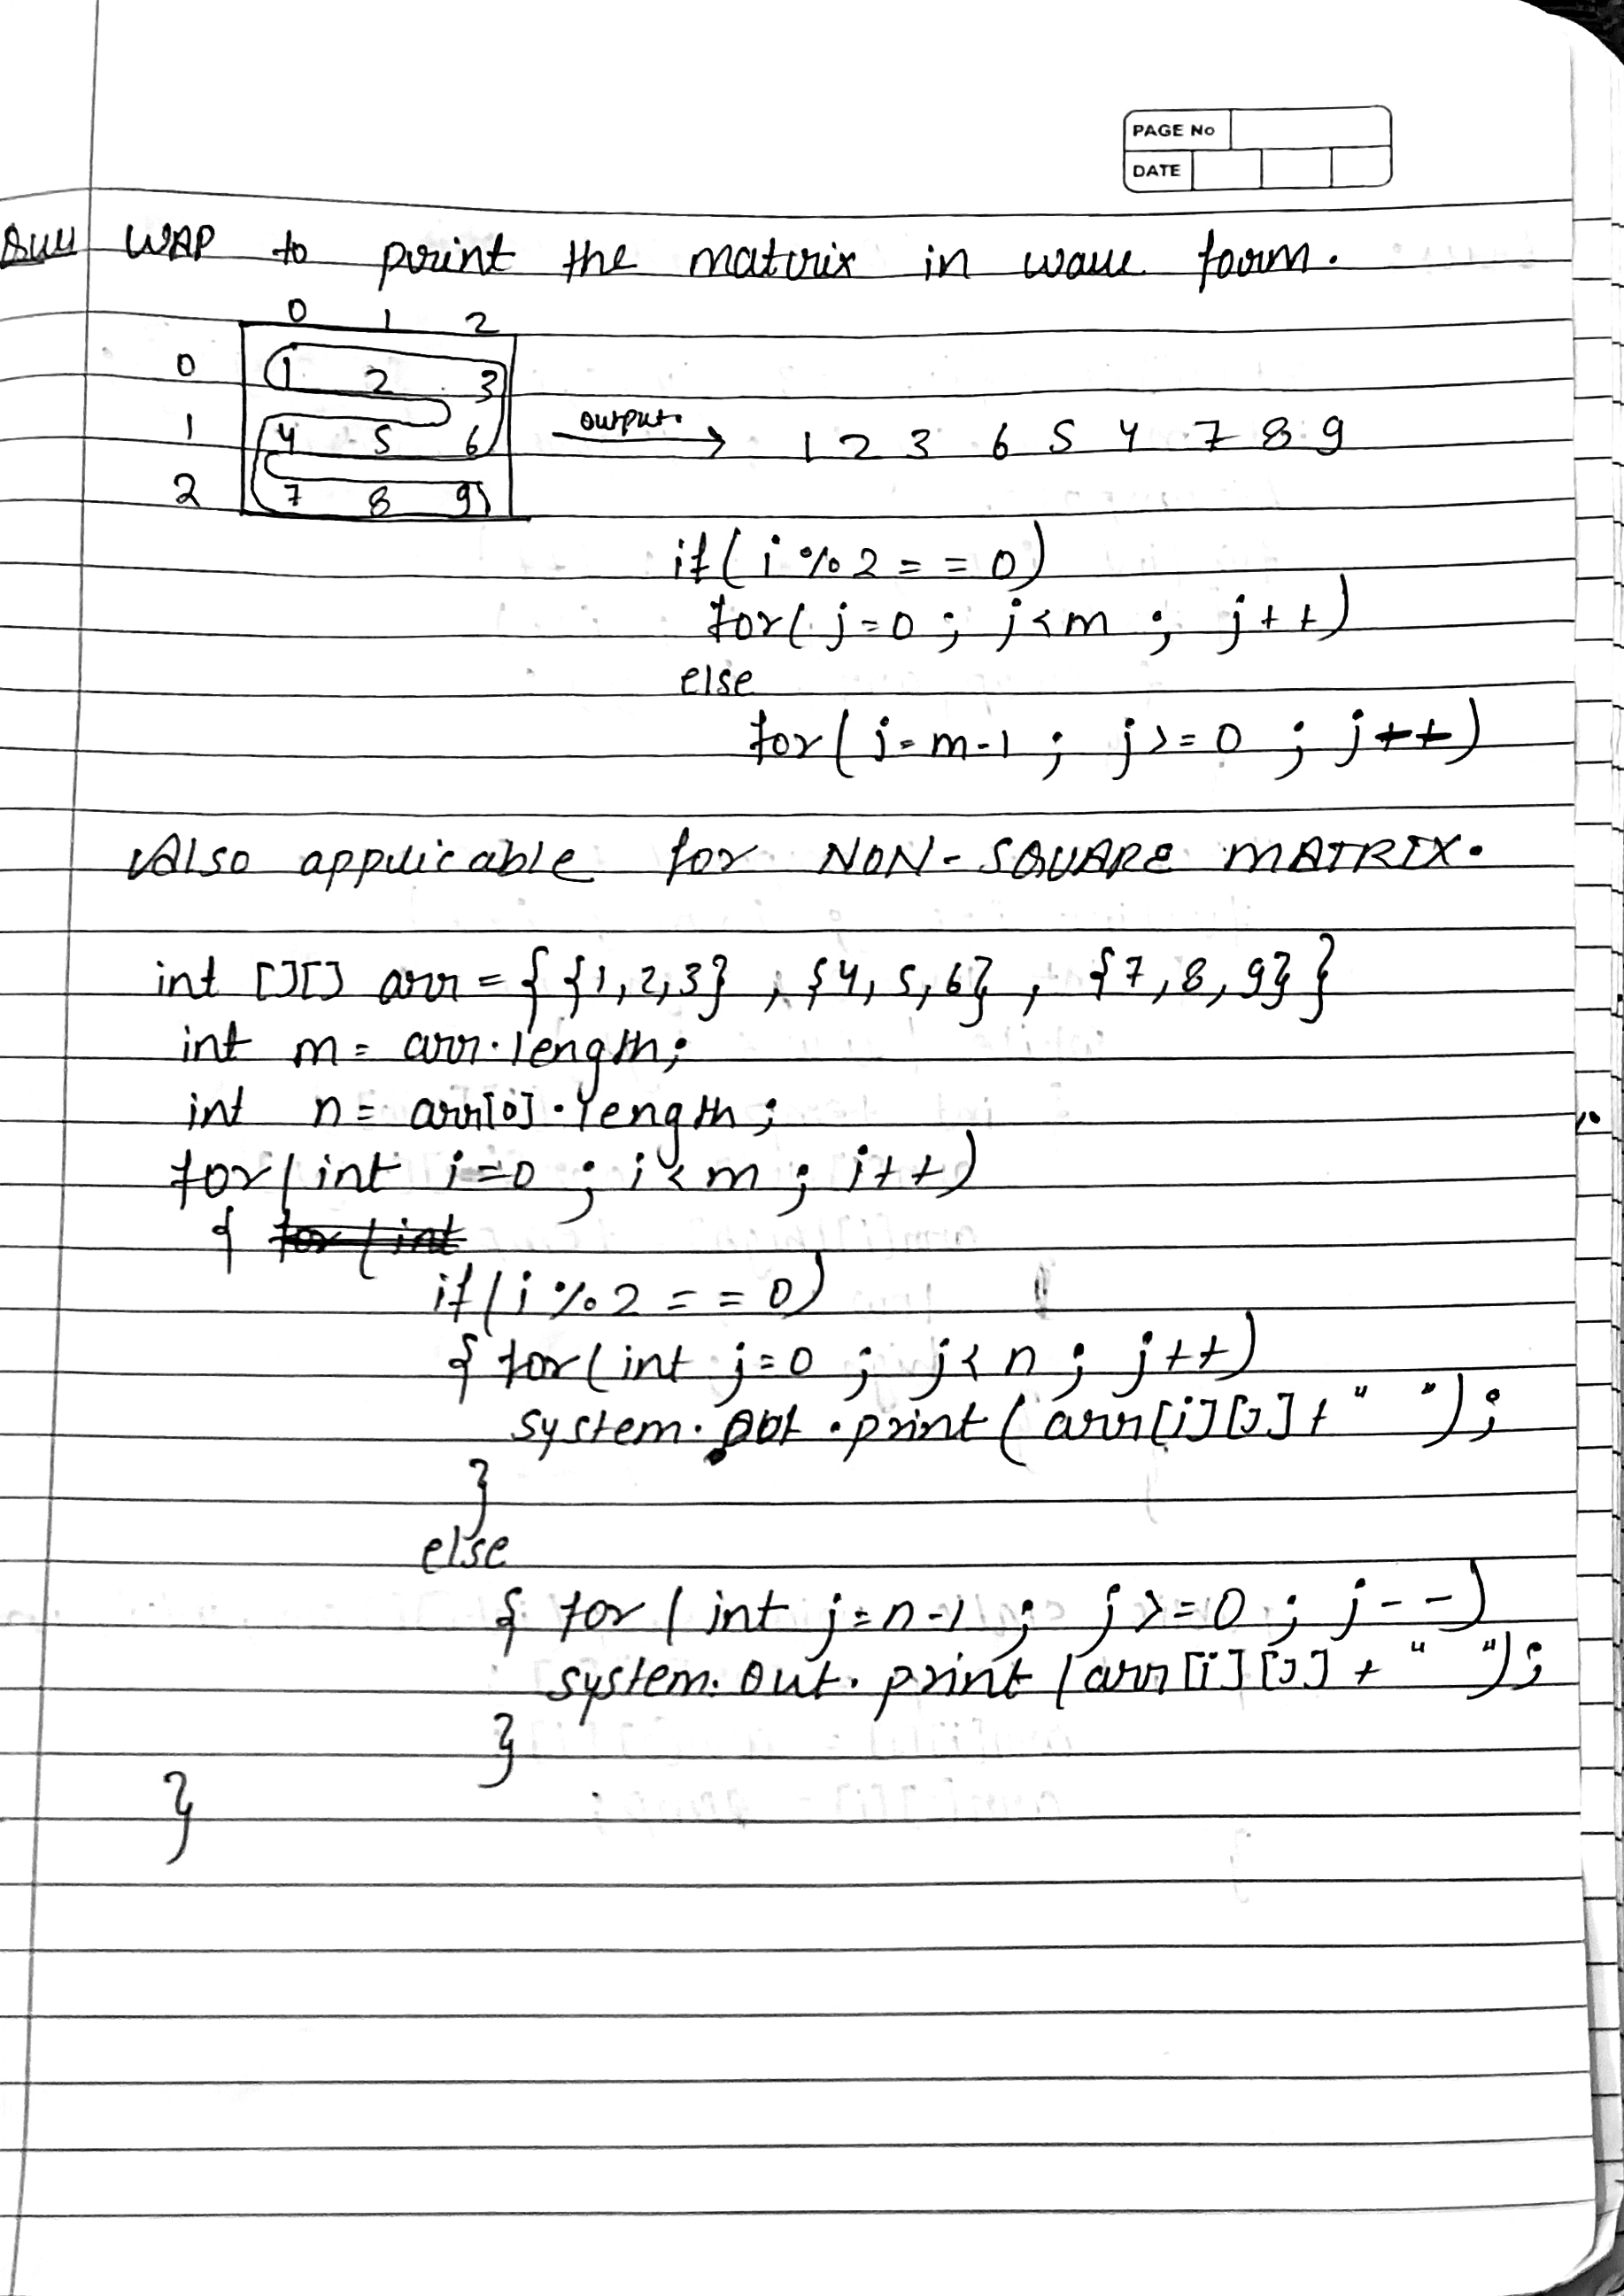 PAGE No
DATE
Que WAP to print the matrix in wave form.
0 1 2
0 1 2 3
1 4 5 6 output 1 2 3 6 5 4 7 8 9
2 7 8 9
if(i%2==0)
for(j=0; j<m; j++)
else
for(j=m-1; j>=0; j++)
Also applicable for NON-SQUARE MATRIX.
int [][] arr={{1,2,3},{4,5,6},{7,8,9}}
int m=arr.length;
int n=arr[0].length;
for(int i=0; i<m; i++)
{ for(int
if(i%2==0)
{ for(int j=0; j<n; j++)
system.out.print(arr[i][j]+" ");
}
else
{ for(int j=n-1; j>=0; j--)
system.out.print(arr[i][j]+" ");
}
}